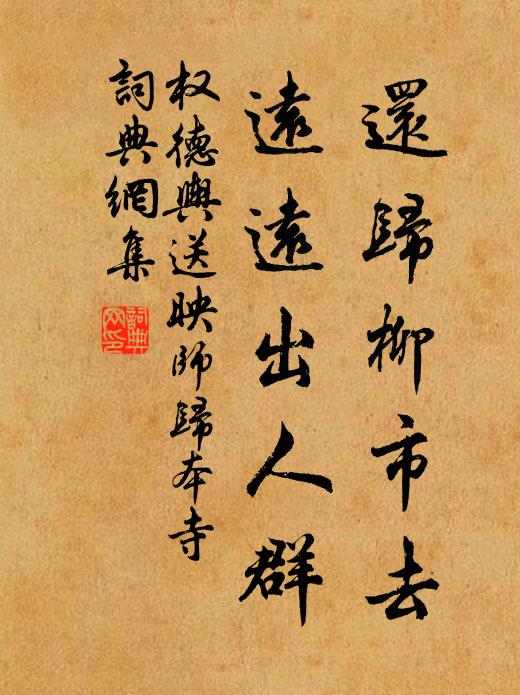 還歸柳市去
遠遠出人群
权德輿送映師歸本寺
詞典網集
詞典网印